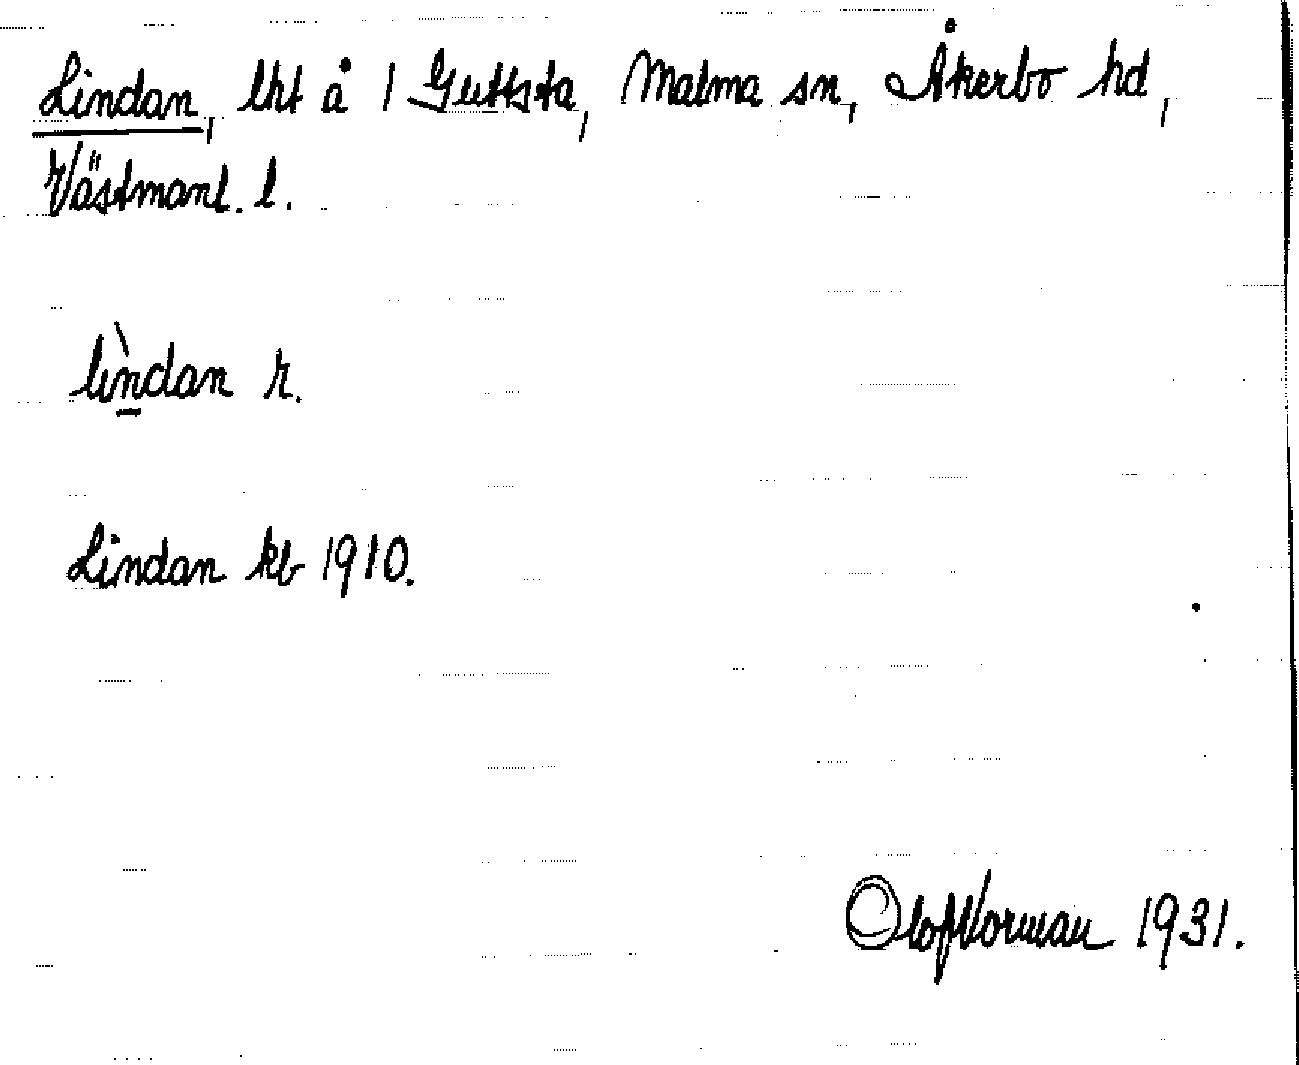 Lindan, lht å 1 Guttsta, Malma sn, Åkerbo hd,
Västmanl. l.
lìn̲dan r.
Lindan kb 1910.
Olof Norman 1931.